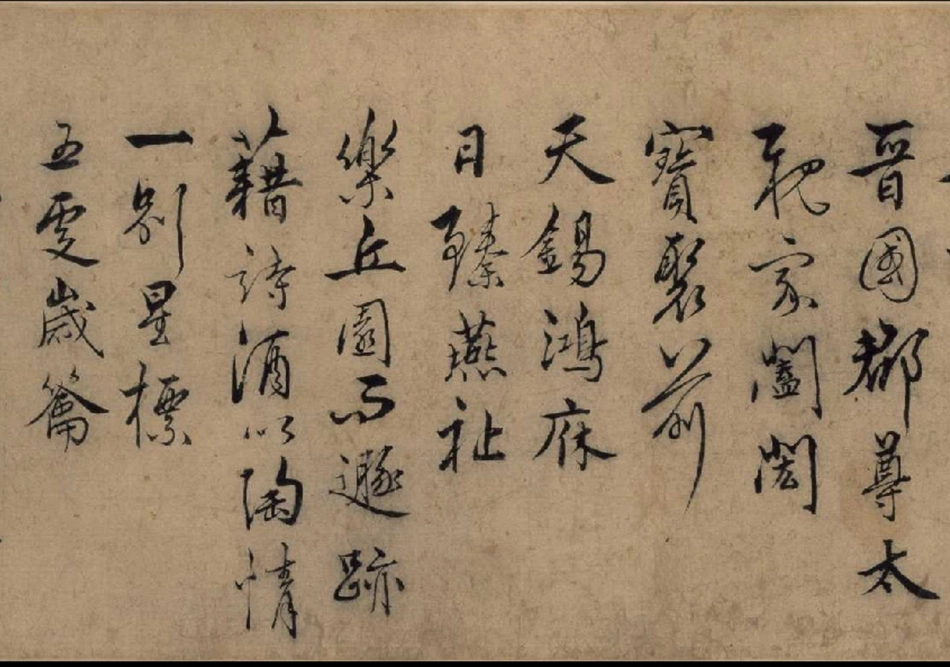 晉國郡尊太
親家闔閎
寶眷以前
天錫鴻庥
日臻燕祉
樂丘園而遯跡
藉詩酒以陶情
一別星標
五更歲籥